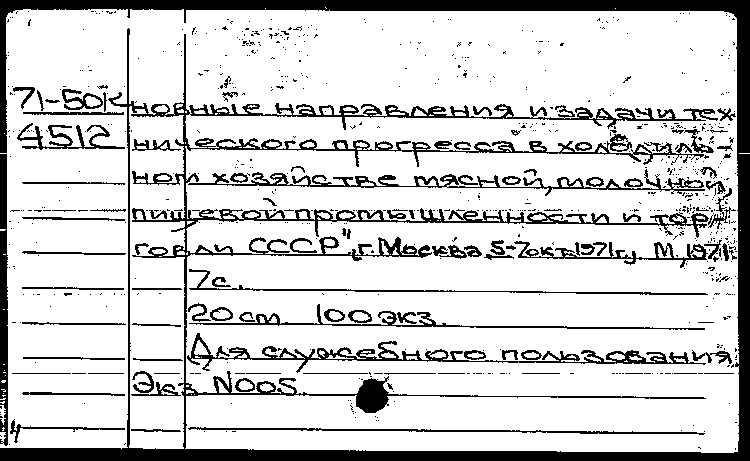 71-50К новные направления и задачи тех-
4512 нического прогресса в холодиль-
ном хозяйстве мясной, молочной,
пищевой промышленности и тор-
говли СССР", г. Москва, 5-7 окт. 1971 г., М., 1971.
7 с.
20 cm. 100 экз.
Для служебного пользования.
Экз. N005.